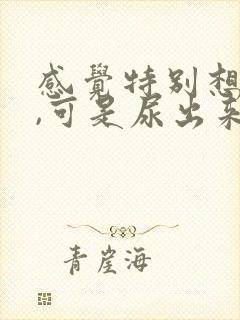 感覺特別想
,可是尿出来
青崖海